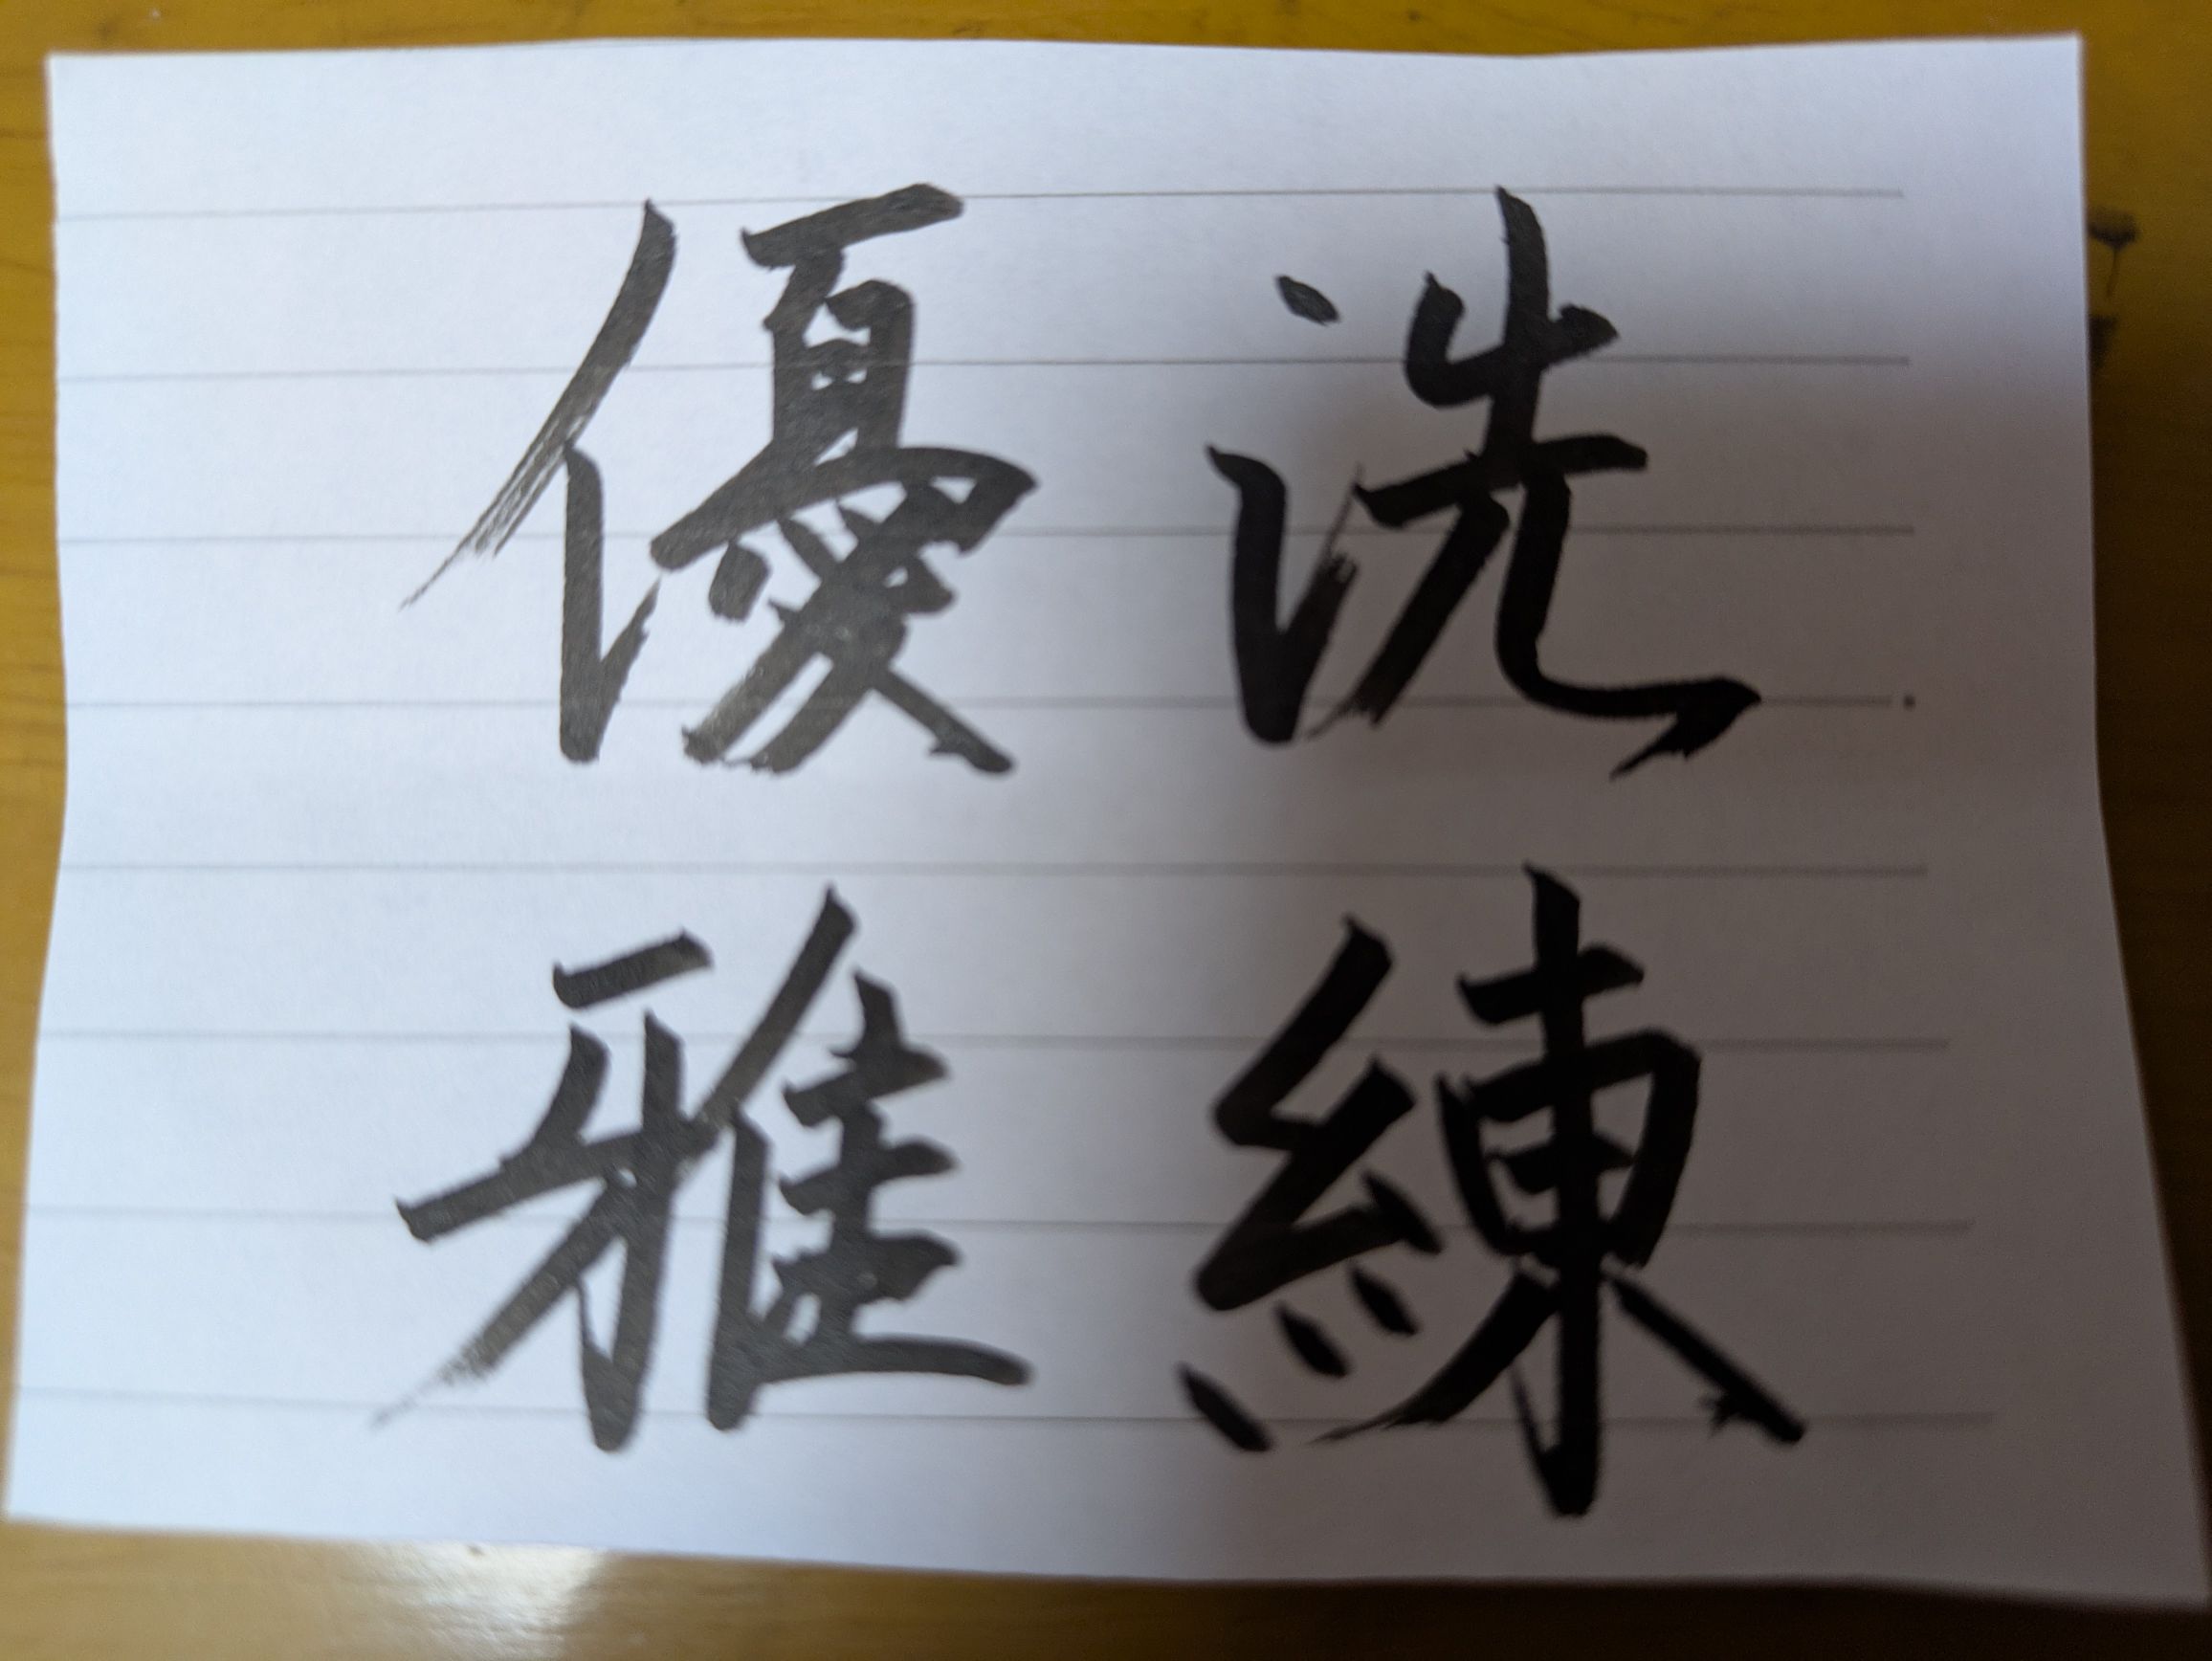 洗練
優雅